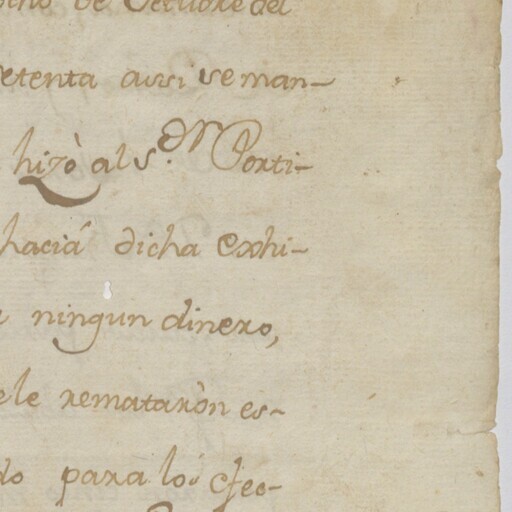 de Octubre del
etenta assi se man-
hizò al s.or Porti-
hacia dicha exhi-
ningun dinero,
ele remataròn es-
do para los efec-